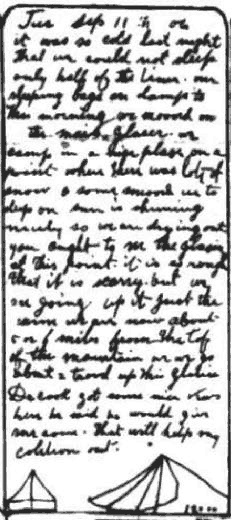 Tue Sep 11 th 06
it was so cold last night
that we could not sleep
only half of the time. our
sleeping bags are damp to
this morning we moved on
the main glaser. we
camp in a nice place on a
point where there was lots of
snow & some smooth ice to
sleep on sun is shining
nicely so we are drying out
you ought to see the glaser
at this point it is so rough
that it is scarry but we
are going up it just the
same we are now about
5 or 6 miles from the top
of the mountain or we go
about 2 travel up this glasier
Dr cook got some nice views
here he said he would give
me some. that will help my
collection out.
12000